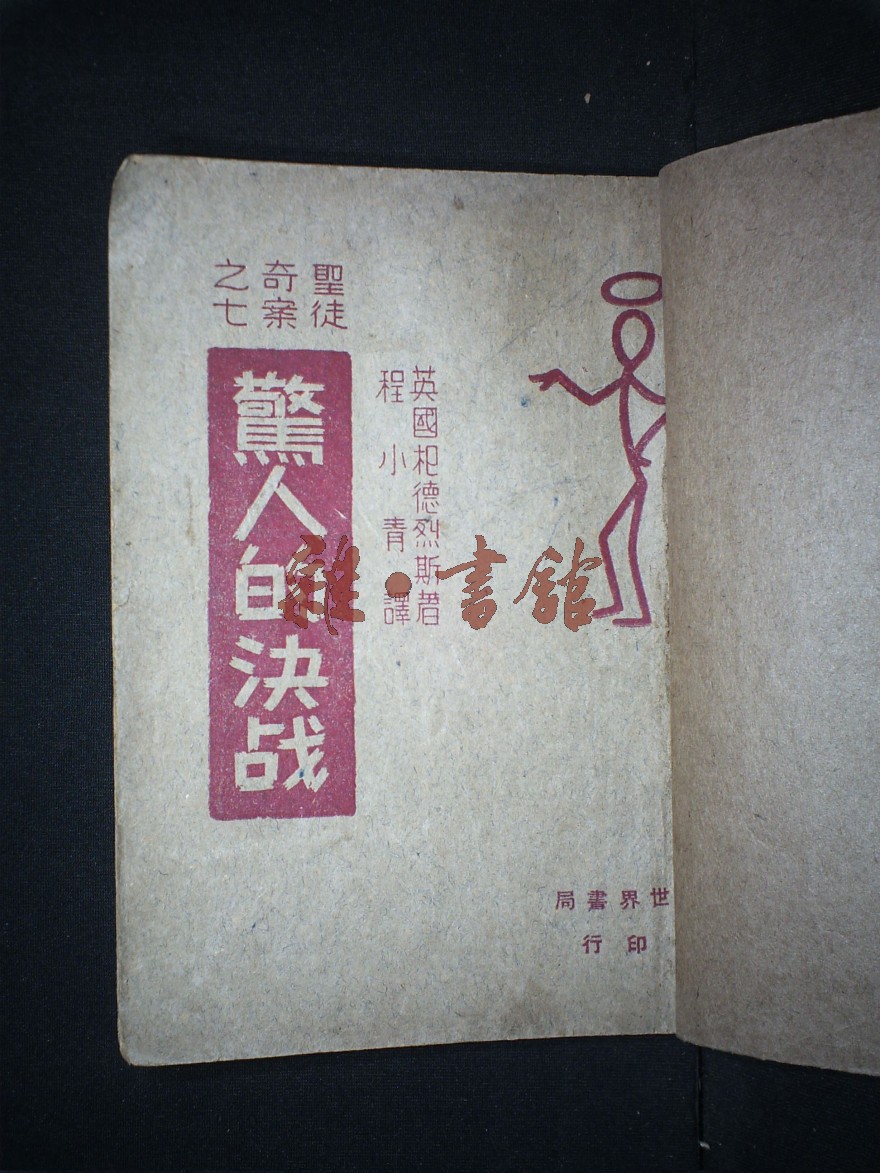 聖徒
奇案
之七
英國杞德烈斯著
程小青譯
驚人的決战
世界書局
印行
雜·書館